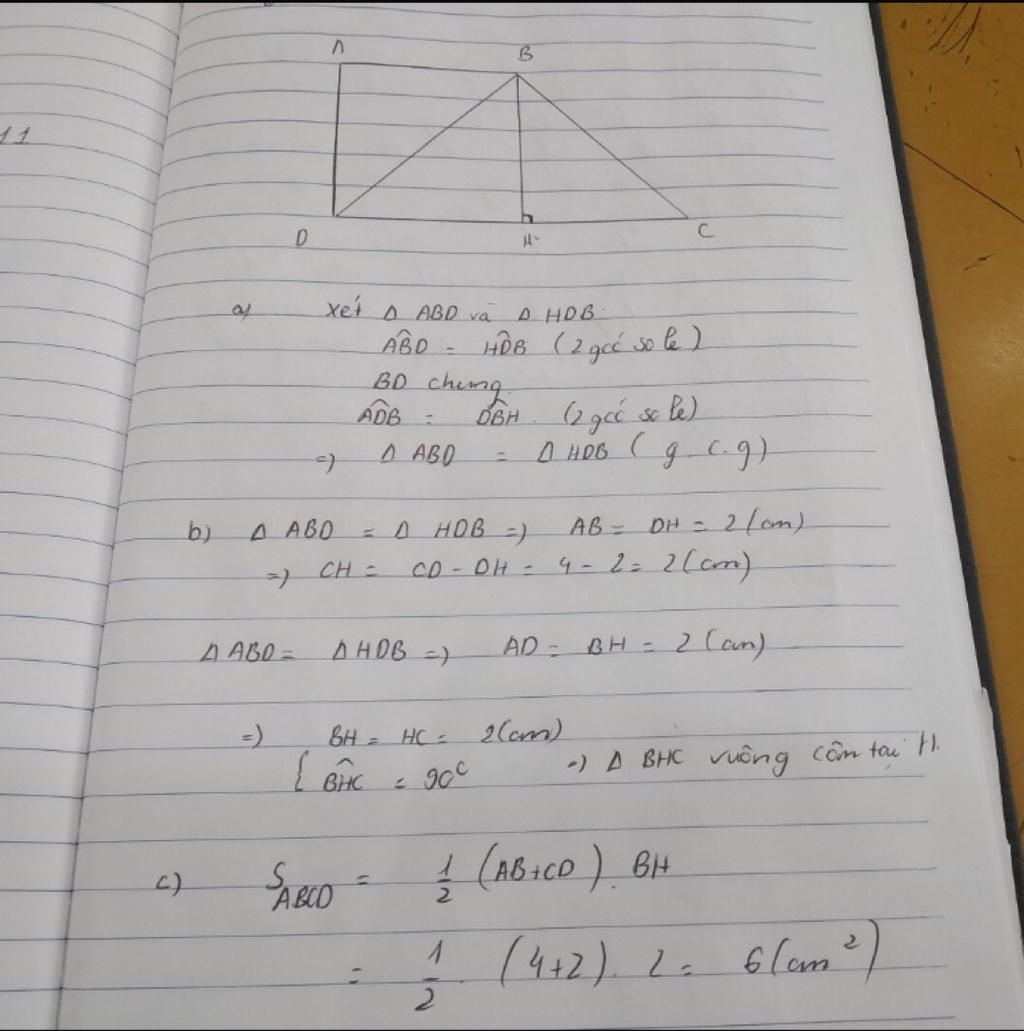 11
A
B
D
H
C
a) Xét Δ ABD và Δ HDB:
ABD̂ = HDB̂ (2 góc so le)
BD chung
ADB̂ = DBĤ (2 góc so le)
=) Δ ABD = Δ HDB ( g c.g)
b) Δ ABD = Δ HDB =) AB = DH = 2 (cm)
=) CH = CD - DH = 4 - 2 = 2 (cm)
Δ ABD = Δ HDB =) AD = BH = 2 (cm)
=) { BH = HC = 2 (cm)
BHĈ = 90° =) Δ BHC vuông cân tại H.
c) S_ABCD = 1/2 (AB+CD). BH
= 1/2 (4+2). 2 = 6 (cm²)